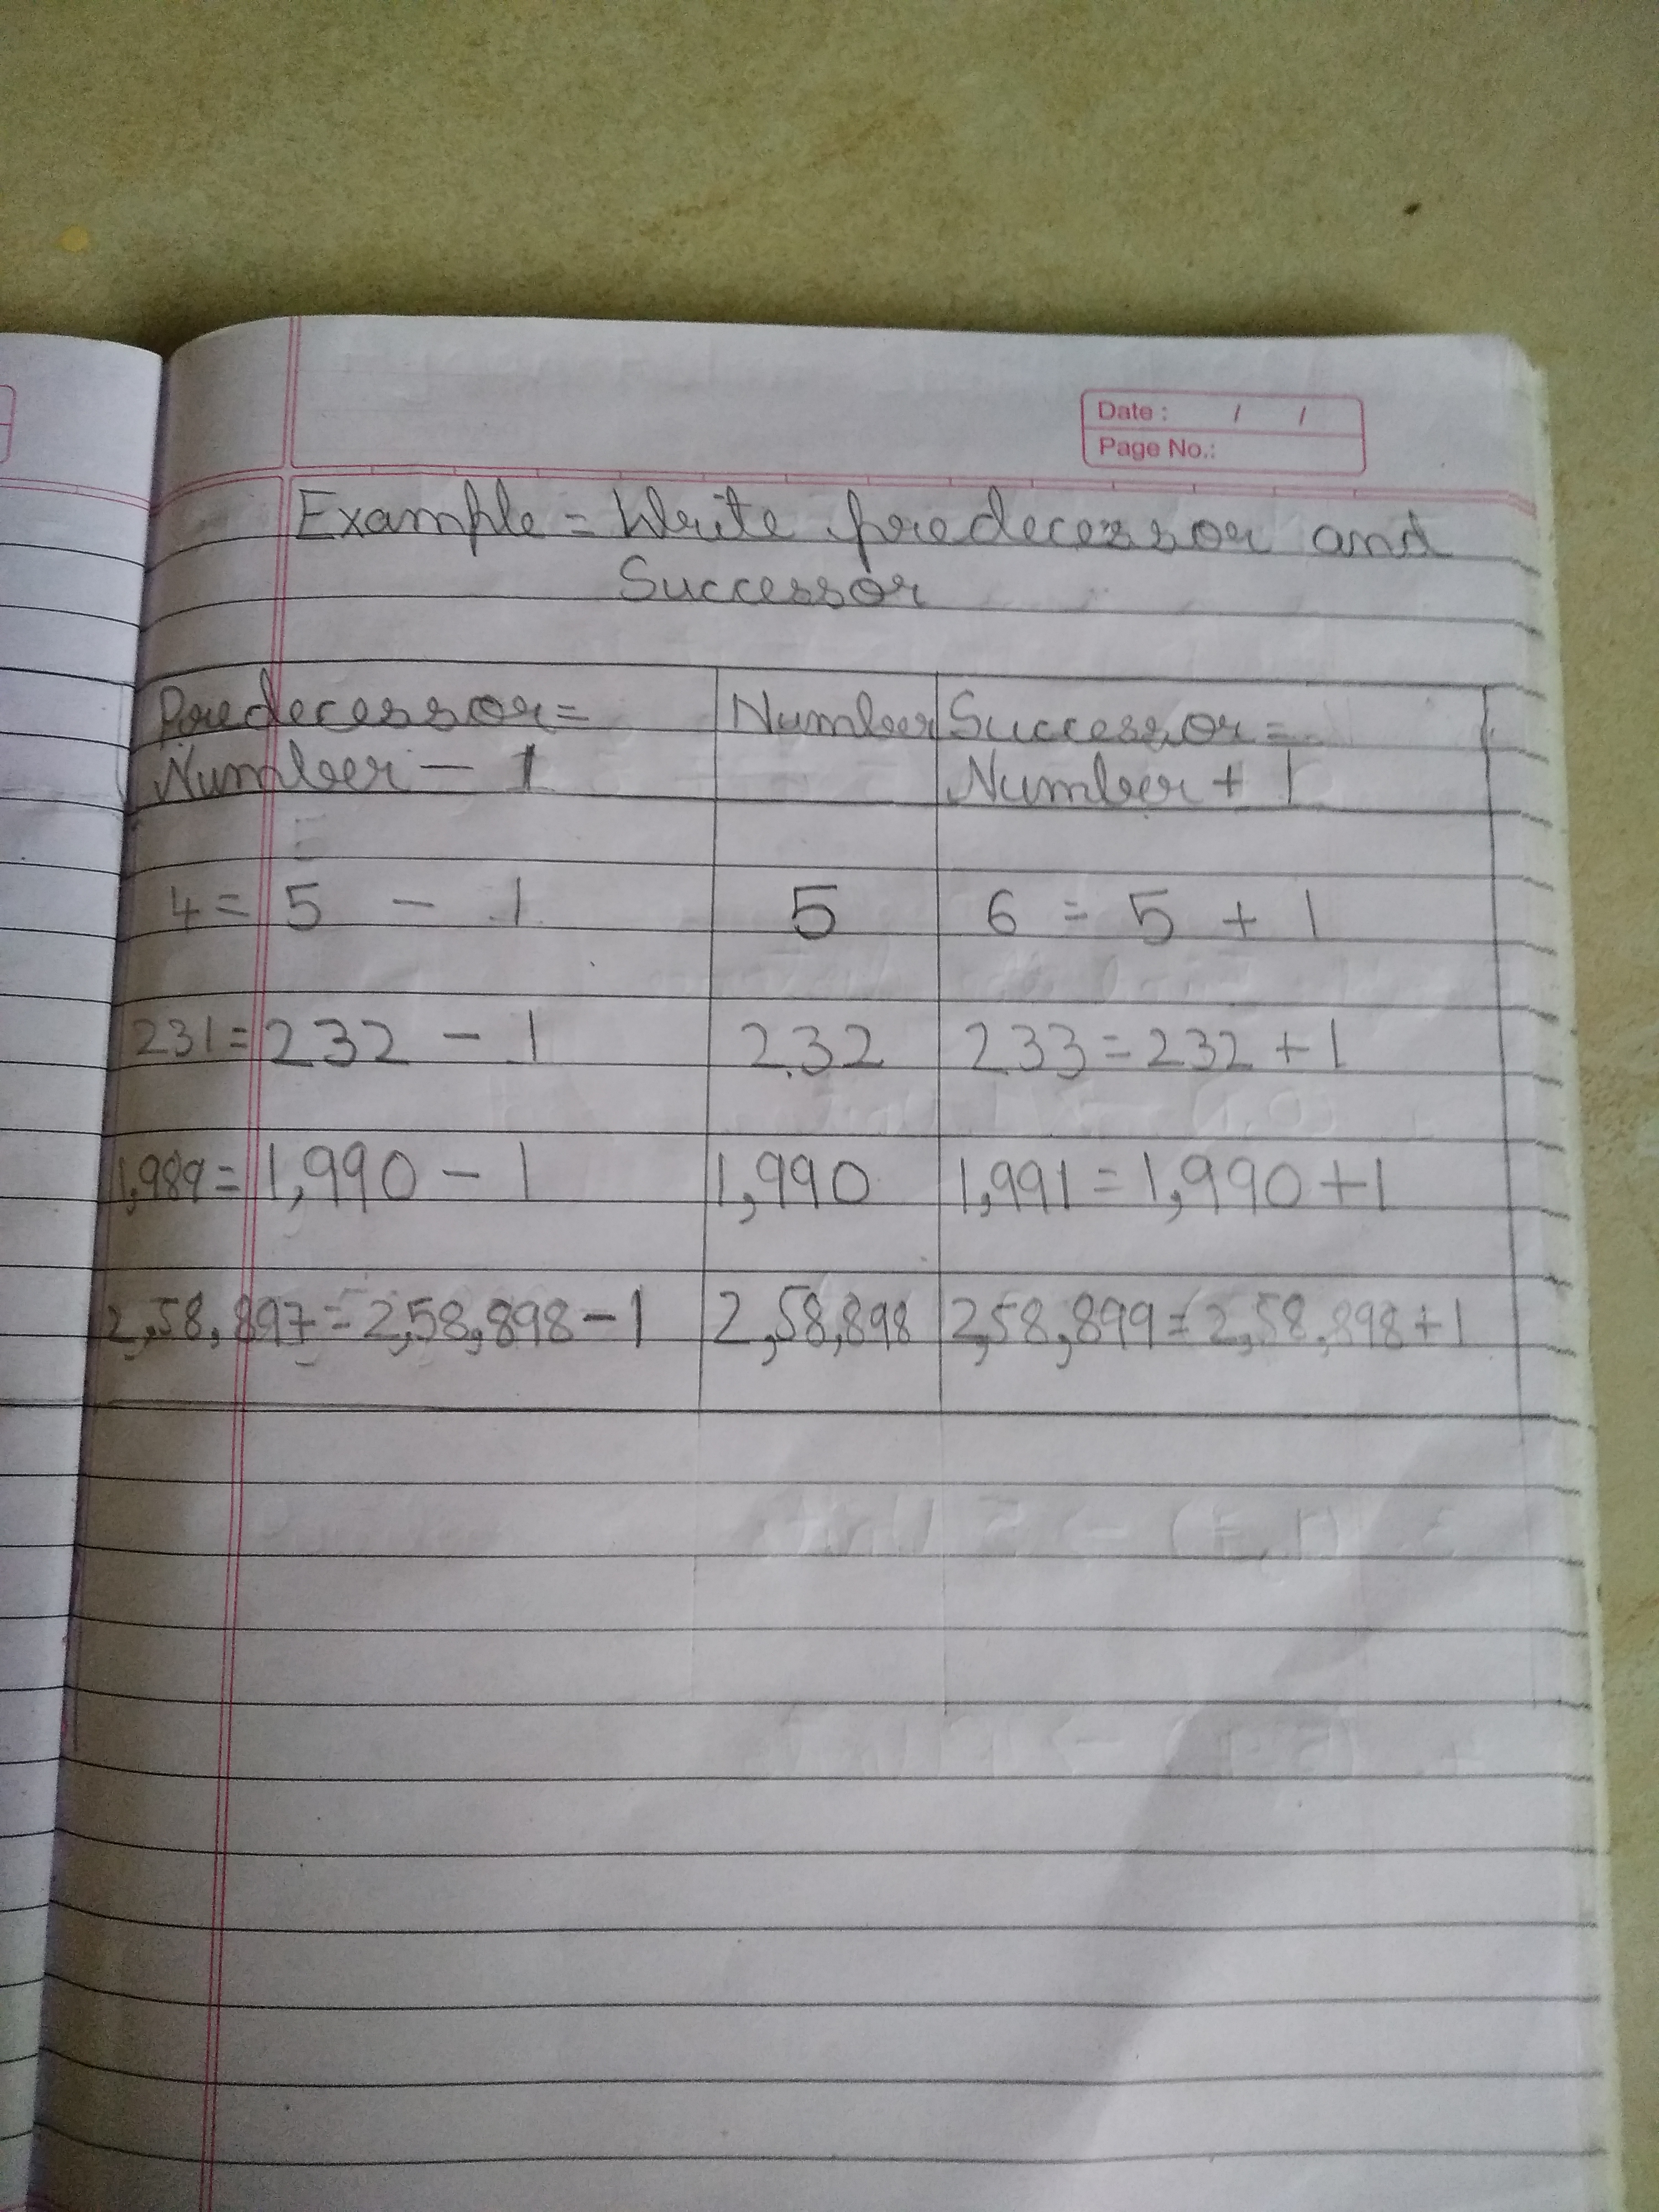 Date : / /
Page No.:
Example = Write predecessor and
Successor
Predecessor = Number Successor =
Number - 1 Number + 1
4 = 5 - 1 5 6 = 5 + 1
231 = 232 - 1 232 233 = 232 + 1
1,989 = 1,990 - 1 1,990 1,991 = 1,990 + 1
2,58,897 = 2,58,898 - 1 2,58,898 2,58,899 = 2,58,898 + 1